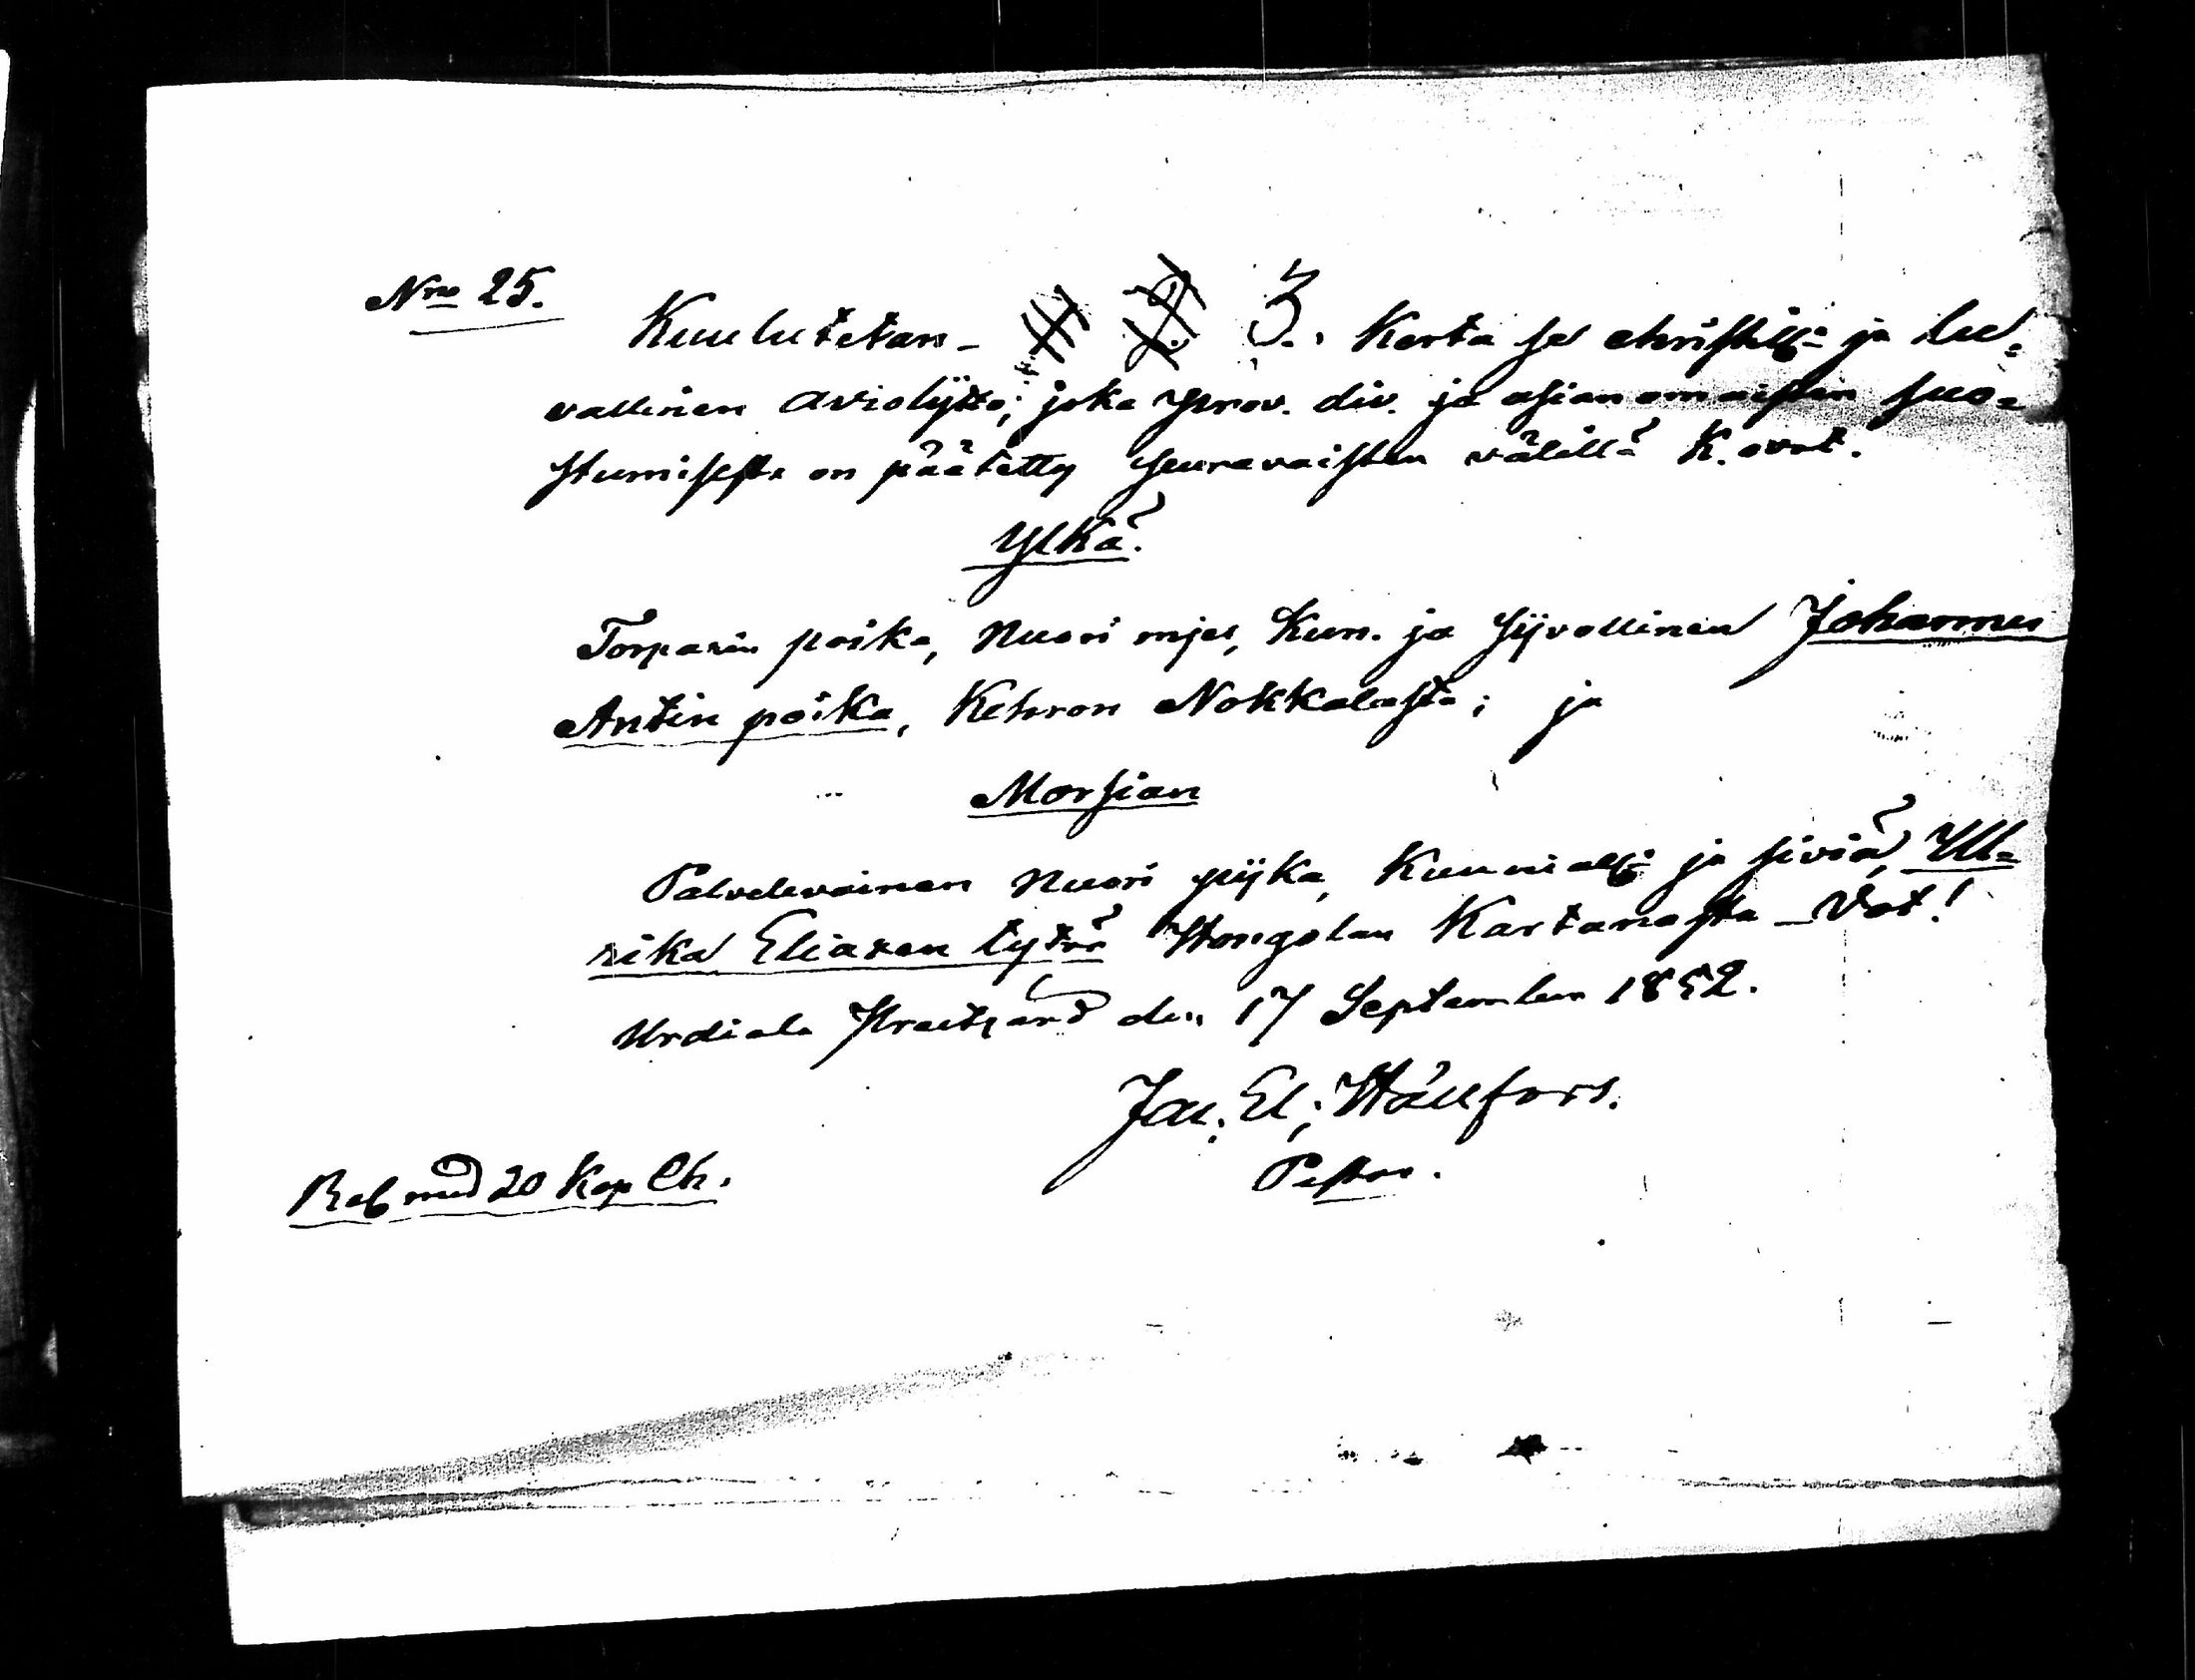 Nro 25.
Kuulutetan - 1. 2. 3. Kerta se christill: ja lu=
vallinen aviolijtto; joka prov. div. ja asianomaisten suo=
stumisesta on päätetty seuravaisten välillä K. ovat.
Ylkä.
Torparin poika, Nuori mjes, Kun. ja syvollinen Johannes
Antin poika, Kehron Nokkalasta; ja
Morsian
Palvelevainen Nuori pijka, Kunniall: ja siviä, Ul=
rika Eliaxen tytär Hongolan Kartanosta - Vot!
Urdiala Prestgård den 17 September 1852.
Jac. El. Hällfors.
Pastor.
Bel med 20 Kop Ch.